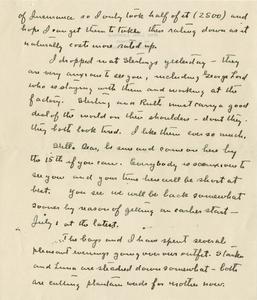 of Insurance so I only took half of it (2500) and
hope I can get them to take their rating down as it
naturally costs more rated up.
I dropped in at Sterlings yesterday - they
are very anxious to see you, including George Lord
who is staying with them and working at the
factory. Sterling and Ruth must carry a good
deal of the world on their shoulders - don't they.
They both look tired. I like them ever so much.
Well dear, be sure and come on here by
the 15th if you can. Everybody is so anxious to
see you and your time here will be short at
best. You see we will be back somewhat
sooner by reason of getting an earlier start -
July 1 at the latest.
The boys and I have spent several
pleasant evenings going over our outfit.
and are steadied down somewhat - both
are cutting plantain weeds for mother now.